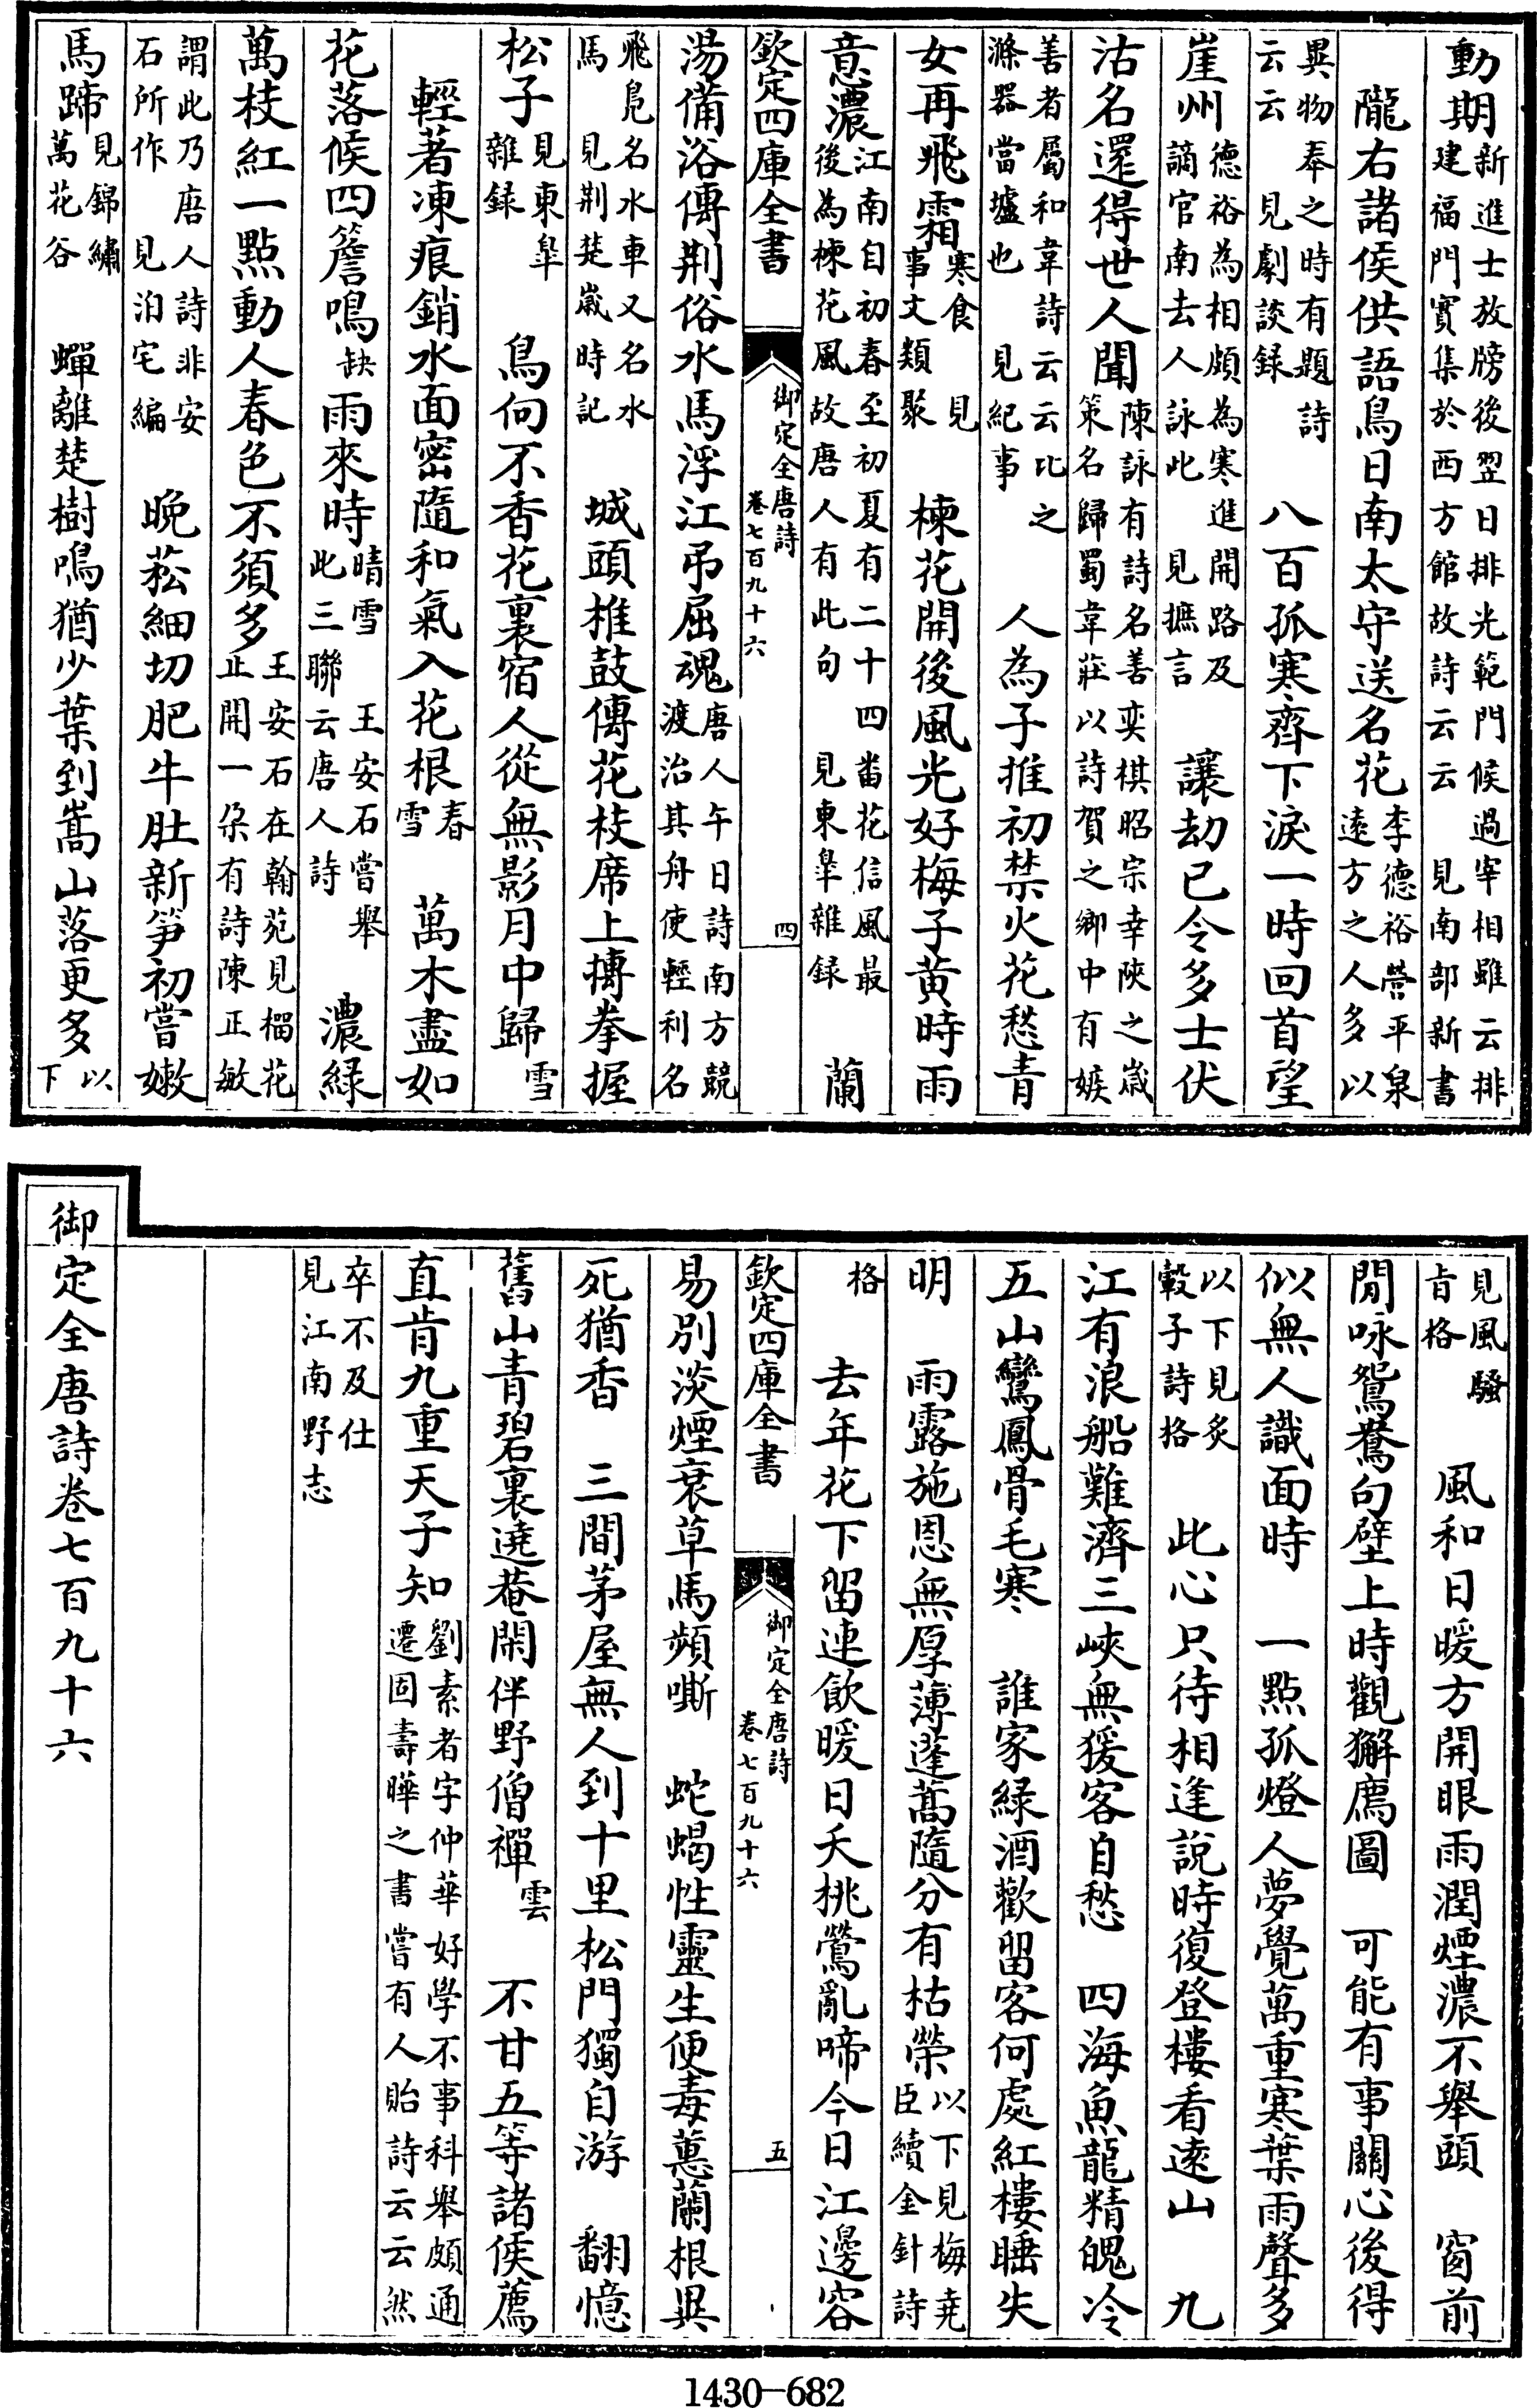 動期新進士放牓後翌日排光範門候過宰相雖云排建福門實集於西方館故詩云云 見南部新書
隴右諸侯供語鳥日南太守送名花李德裕營平泉遠方之人多以
異物奉之時有題詩云云 見劇談録 八百孤寒齊下淚一時回首望
崖州德裕為相頗為寒進開路及謫官南去人詠此 見摭言 讓劫已令多士伏
沽名還得世人聞陳詠有詩名善奕棋昭宗幸陜之歲策名歸蜀韋莊以詩賀之鄉中有嫉
善者屬和韋詩云云比之滌器當壚也 見紀事 人為子推初禁火花愁青
女再飛霜寒食 見事文類聚 楝花開後風光好梅子黄時雨
意濃江南自初春至初夏有二十四畨花信風最後為楝花風故唐人有此句 見東臯雜録 蘭
欽定四庫全書 御定全唐詩 卷七百九十六 四
湯備浴傳荆俗水馬浮江弔屈魂唐人午日詩南方競渡治其舟使輕利名
飛鳬名水車又名水馬 見荆楚歲時記 城頭椎鼓傳花枝席上摶拳握
松子見東臯雜録 鳥向不香花裏宿人從無影月中歸雪
輕著凍痕銷水面密隨和氣入花根春雪 萬木盡如
花落候四簷鳴缺雨來時晴雪 王安石嘗舉此三聯云唐人詩 濃緑
萬枝紅一點動人春色不須多王安石在翰苑見榴花止開一朶有詩陳正敏
謂此乃唐人詩非安石所作 見泊宅編 晩菘細切肥牛肚新笋初嘗嫩
馬蹄見錦繡萬花谷 蟬離楚樹鳴猶少葉到嵩山落更多以下
見風騷旨格 風和日暖方開眼雨潤煙濃不舉頭 窗前
閒咏鴛鴦句壁上時觀獬廌圖 可能有事關心後得
似無人識面時 一點孤燈人夢覺萬重寒葉雨聲多
以下見炙轂子詩格 此心只待相逢說時復登樓看遠山 九
江有浪船難濟三峽無猨客自愁 四海魚龍精魄冷
五山鸞鳳骨毛寒 誰家緑酒歡留客何處紅樓睡失
明 雨露施恩無厚薄蓬蒿隨分有枯榮以下見梅堯臣續金針詩
格 去年花下留連飲暖日夭桃鶯亂啼今日江邊容
欽定四庫全書 御定全唐詩 卷七百九十六 五
易别淡煙衰草馬頻嘶 蛇蝎性靈生便毒蕙蘭根異
死猶香 三間茅屋無人到十里松門獨自游 翻憶
舊山青碧裏遶菴閑伴野僧禪雲 不甘五等諸侯薦
直肯九重天子知劉素者字仲華好學不事科舉頗通遷固壽曄之書嘗有人貽詩云云然
卒不及仕見江南野志
御定全唐詩卷七百九十六
1430-682